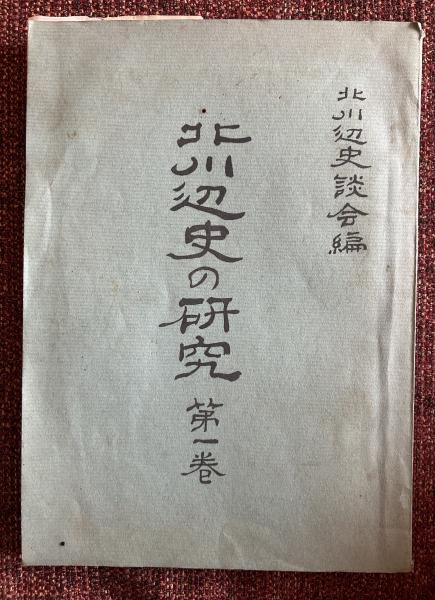 北川辺史談会編
北川辺史の研究 第一巻